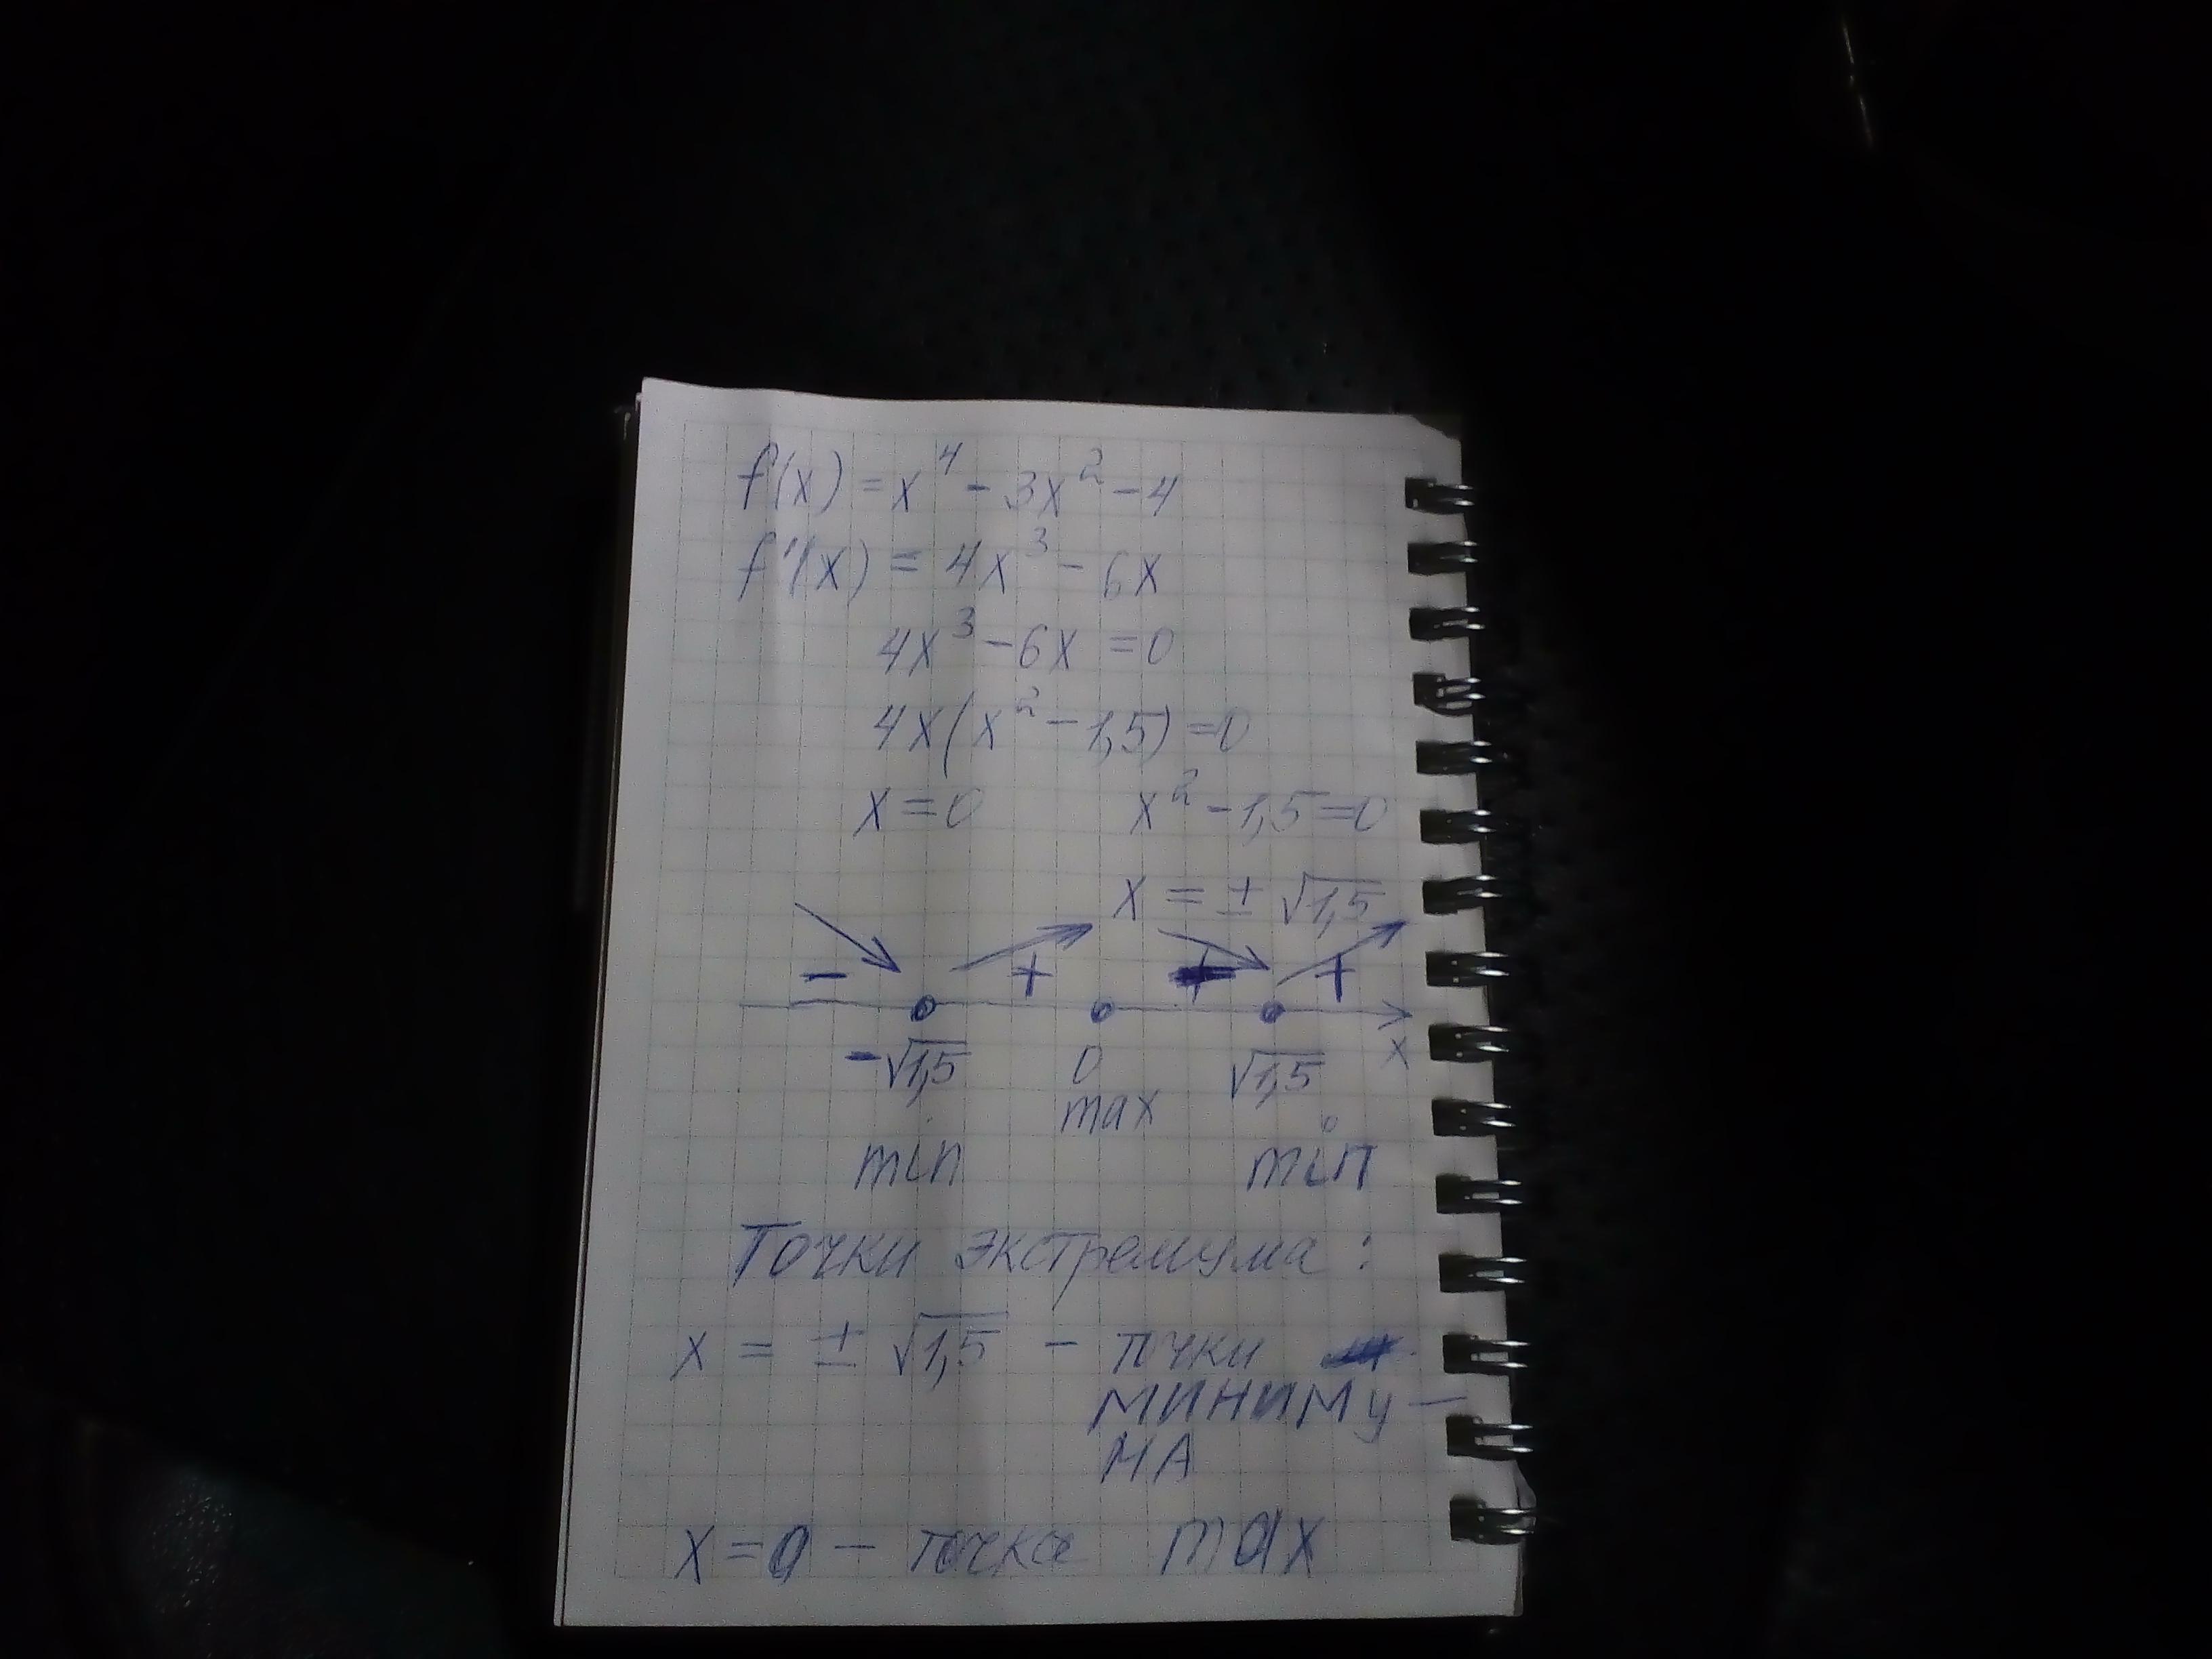 f(x) = x⁴ - 3x² - 4
f'(x) = 4x³ - 6x
4x³ - 6x = 0
4x(x² - 1,5) = 0
x = 0 x² - 1,5 = 0
x = ± √1,5
- + +
-√1,5 0 √1,5 x
max
min min
Точки экстремума:
x = ± √1,5 - точки
МИНИМУ-
МА
x = 0 - точка max